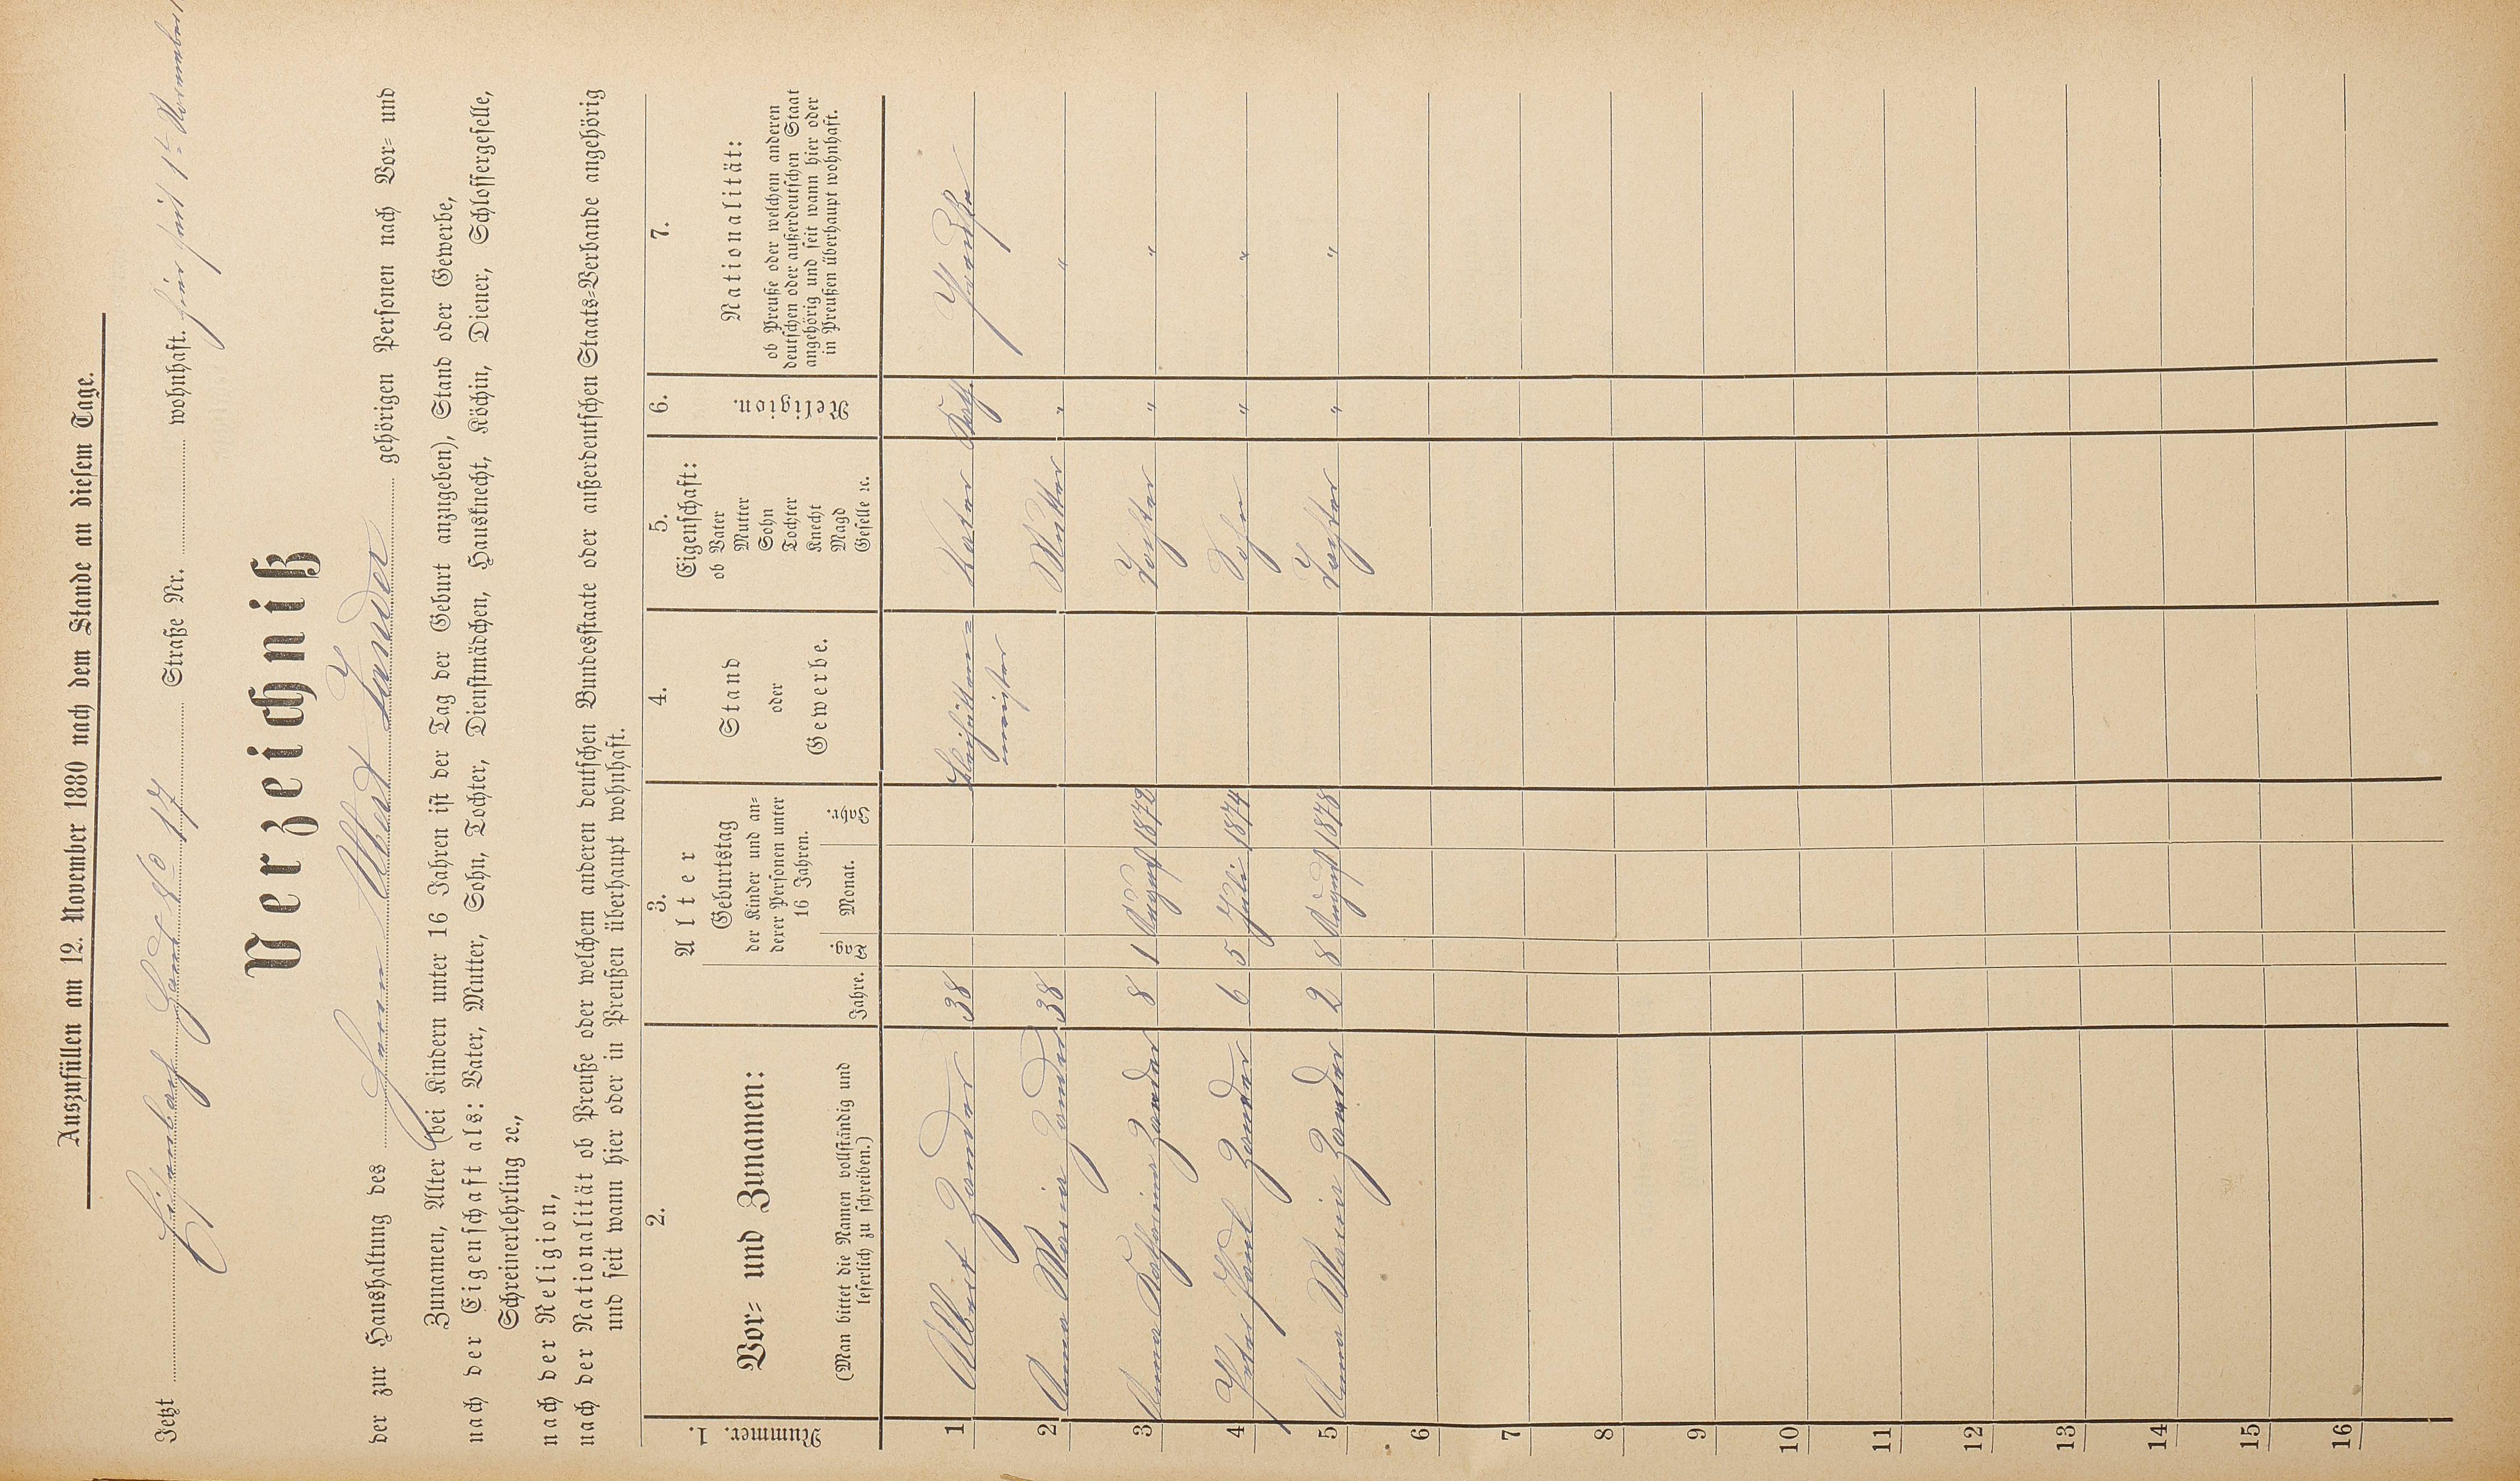 Auszufüllen am 12. November 1880 nach dem Stande an diesem Tage.
Jetzt Eschenbach Haus No 17 Straße Nr. wohnhaft. hier seit 1t November
Verzeichniß
der zur Haushaltung des Herrn Albert Zander gehörigen Personen nach Vor= und
Zunamen, Alter (bei Kindern unter 16 Jahren ist der Tag der Geburt anzugeben), Stand oder Gewerbe,
nach der Eigenschaft als: Vater, Mutter, Sohn, Tochter, Dienstmädchen, Hausknecht, Köchin, Diener, Schlossergeselle,
Schreinerlehrling ꝛc.,
nach der Religion,
nach der Nationalität ob Preuße oder welchem anderen deutschen Bundesstaate oder außerdeutschen Staats=Verbande angehörig
und seit wann hier oder in Preußen überhaupt wohnhaft.
Nummer. 1.
2.
Vor= und Zunamen:
(Man bittet die Namen vollständig und
leserlich zu schreiben.)
3.
Alter
Jahre.
Geburtstag
der Kinder und an=
derer Personen unter
16 Jahren.
Tag. Monat. Jahr.
4.
Stand
oder
Gewerbe.
5.
Eigenschaft:
ob Vater
Mutter
Sohn
Tochter
Knecht
Magd
Geselle ꝛc.
6.
Religion.
7.
Nationalität:
ob Preuße oder welchem anderen
deutschen oder außerdeutschen Staat
angehörig und seit wann hier oder
in Preußen überhaupt wohnhaft.
1 Albert Zander 38 meister Vater Kath. Preuße
2 Anna Maria Zander 38 Mutter " "
3 Anna Katharina Zander 8 1 August 1872 Tochter " "
4 Peter Paul Zander 6 5 Juli 1874 Sohn " "
5 Anna Maria Zander 2 8 August 1878 Tochter " "
6
7
8
9
10
11
12
13
14
15
16